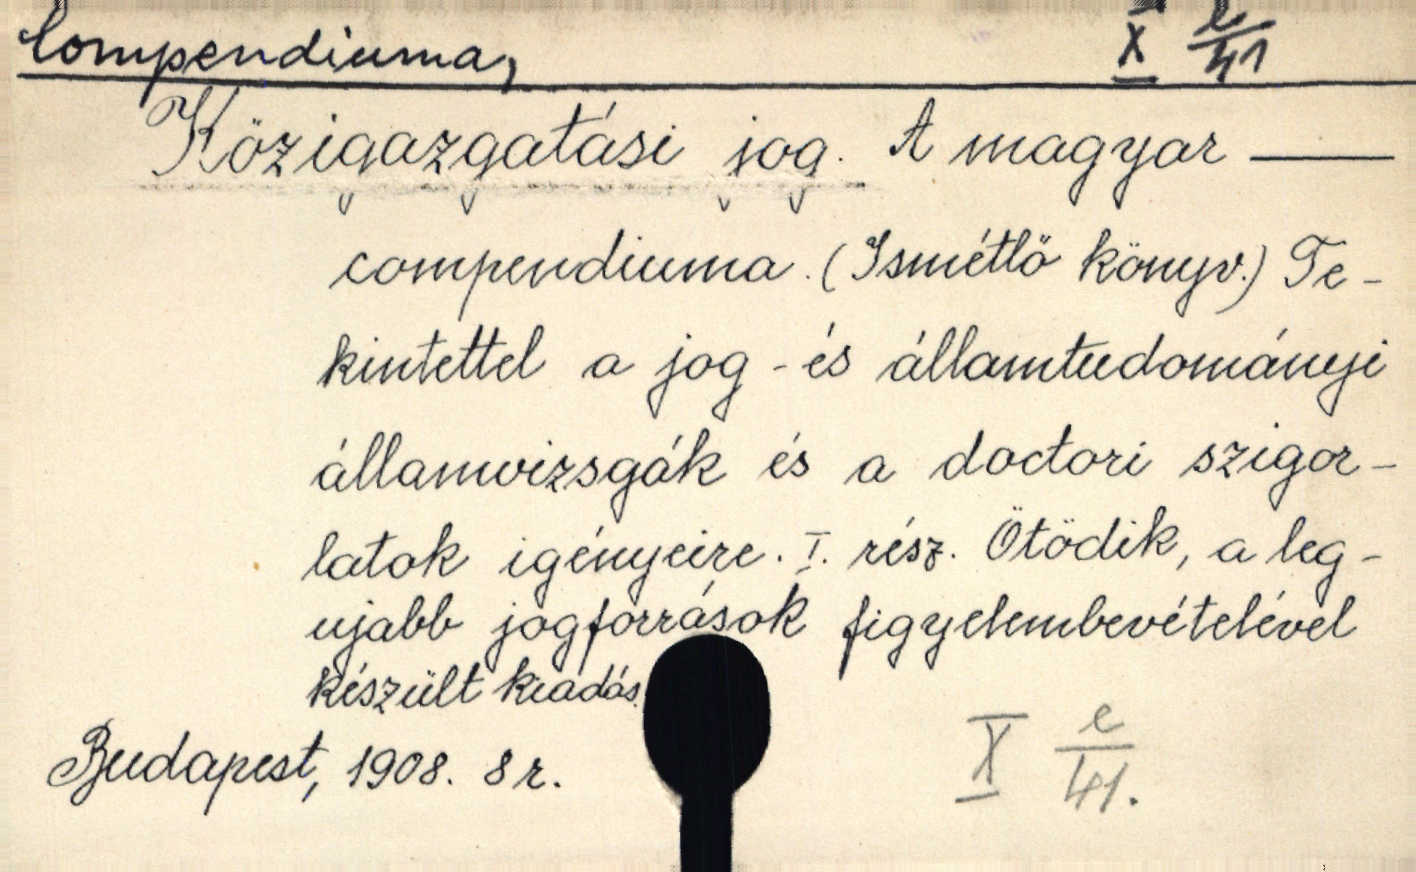 Compendiuma, X e/41
Közigazgatási jog. A magyar ———
compendiuma. (Ismétlő könyv.) Te-
kintettel a jog- és államtudományi
államvizsgák és a doctori szigor-
latok igényeire. I. rész. Ötödik, a leg-
ujabb jogforrások figyelembevételével
készült kiadás.
Budapest, 1908. 8r.
X e/41.